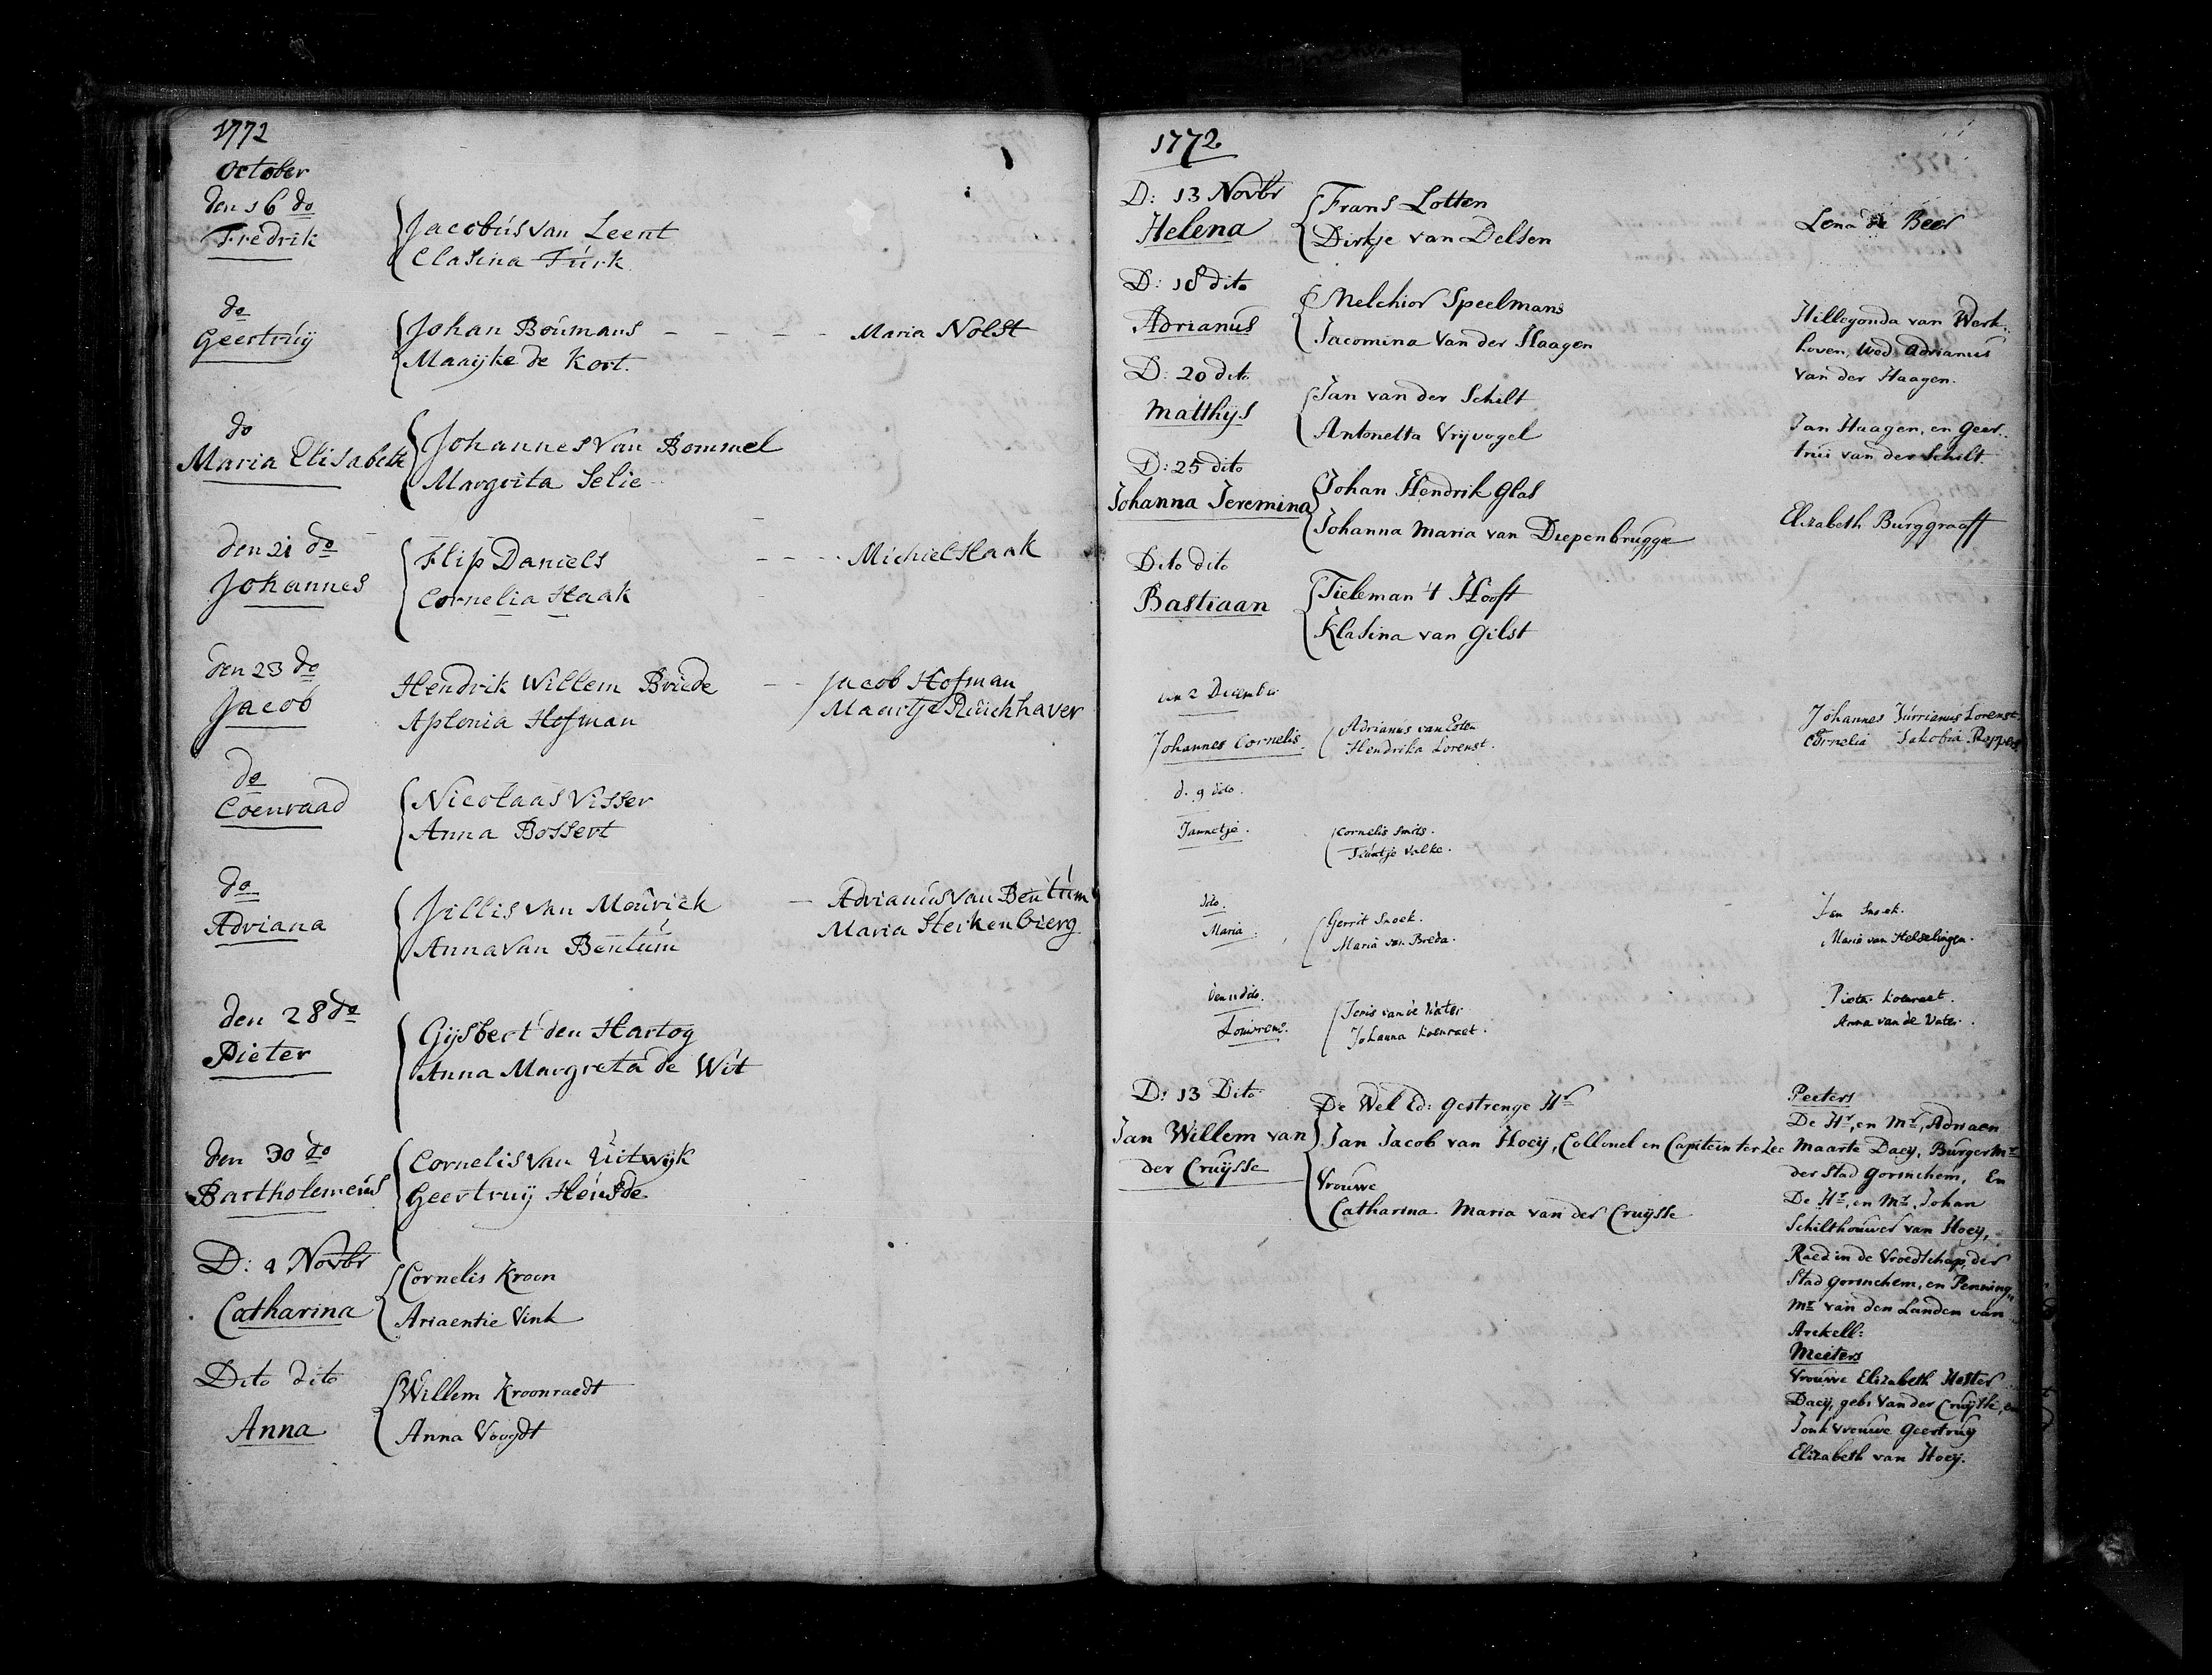 1772
October
den 16 do
Fredrik
Jacobus van Leent
Clasina Turk
do
Geertruij
Johan Boumans - - - - Maria Nolst
Maaijke de Kort.
do
Maria Elisabeth
Johannes van Bommel
Margrita Selie
den 21 do
Johannes
Flip Daniels - - - Michiel Haak
Cornelia Haak
den 23 do
Jacob
Hendrik Willem Briede - - Jacob Hofman
Aplonia Hofman Maartje
do
Coenraad
Nicolaas Visser
Anna Bossert
do
Adriana
Jillis van Mourick - Adrianus van Bentum
Anna van Bentum Maria Sterkenbierg
den 28 do
Pieter
Gijsbert den Hartog
Anna Margreta de Wit
den 30 do
Bartholemeus
Cornelis van Uitwijk
Geertruij Heusde
D: Novbr
Catharina
Cornelis Kroon
Ariaentie Vink
Dito dito
Anna
Willem Kroonraedt
Anna Voogdt
1772
D: 13 Novbr
Helena
Frans Lotten
Dirkje van Delsen
Lena de Beer
D: 18 dito
Adrianus
Melchior Speelmans
Jacomina van der Haagen
Hillegonda van Werk..
hoven, Wed. Adrianus
van der Haagen.
D: 20 dito
Matthijs
Jan van der Schilt
Antonetta Vrijvogel
Jan Haagen, en Geer..
trui van der Schilt.
D: 25 dito
Johanna Jeremina
Johan Hendrik Glas
Johanna Maria van Diepenbrugge
Elizabeth Burggraaff
Dito dito
Bastiaan
Tieleman 't Hooft
Klasina van Gilst
den 2 December
Johannes Cornelis
Adrianus van Esten
Hendrika Lorenst.
Johannes Jurrianus Lorenst.
Cornelia Jakobia
d. 9 dito.
Jannetje.
Cornelis Smits.
Valke.
dito.
Maria
Gerrit Snoek.
Maria van Breda.
Jan Snoek.
Maria van Helselingen.
den 11 dito.
Louwrens.
Joris van de Water
Johanna Koenraet.
Pieter Koenraet.
Anna van de Water.
D: 13 Dito
Jan Willem van
der Cruijsse
De Wel Ed: Gestrenge Hr
Jan Jacob van Hoeij, Collonel en Capitein ter Zee
Vrouwe
Catharina Maria van der Cruijsse
Peeters
De Hr, en Mr, Adriaen
Maarte Daeij, Burgermr
der Stad Gorinchem, En
De Hr, en Mr, Johan
Schilthouwer van Hoeij,
Raed in de Vroedschap, der
Stad Gorinchem, en Penning„
Mr van den Landen van
Arckell:
Meeters
Vrouwe Elizabeth Hester
Daeij, geb: Van der Cruijsse, en
Jonk Vrouwe Geertruy
Elizabeth van Hoeij.